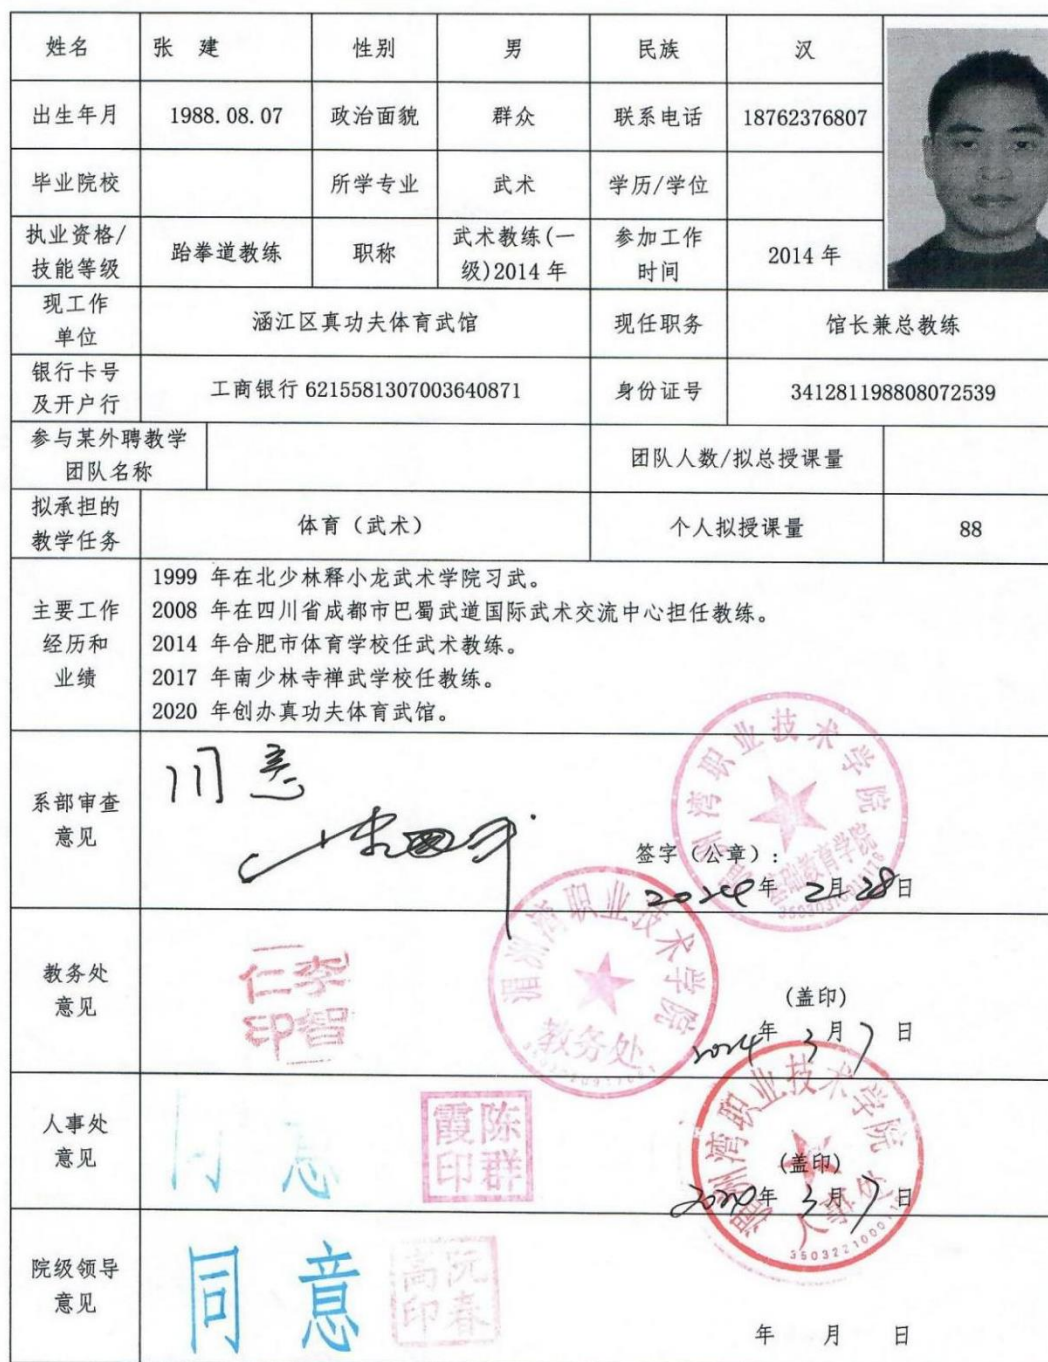 姓名 张 建 性别 男 民族 汉
出生年月 1988.08.07 政治面貌 群众 联系电话 18762376807
毕业院校 所学专业 武术 学历/学位
执业资格/
技能等级 跆拳道教练 职称 武术教练(一
级)2014 年 参加工作
时间 2014 年
现工作
单位 涵江区真功夫体育武馆 现任职务 馆长兼总教练
银行卡号
及开户行 工商银行 6215581307003640871 身份证号 341281198808072539
参与某外聘教学
团队名称 团队人数/拟总授课量
拟承担的
教学任务 体育（武术） 个人拟授课量 88
主要工作
经历和
业绩
1999 年在北少林释小龙武术学院习武。
2008 年在四川省成都市巴蜀武道国际武术交流中心担任教练。
2014 年合肥市体育学校任武术教练。
2017 年南少林寺禅武学校任教练。
2020 年创办真功夫体育武馆。
系部审查
意见
同意
签字（公章）：
2024年 2月 28日
湄洲湾职业技术学院
基础教育学院
教务处
意见
李智仁印
湄洲湾职业技术学院
教务处
(盖印)
2024年 3月 7日
人事处
意见
同意
陈群霞印
湄洲湾职业技术学院
人事处
(盖印)
2024年 3月 7日
院级领导
意见
同意
阮春高印
年 月 日